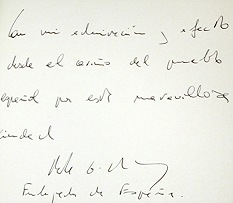 Con mi admiración y afecto
desde el cariño del pueblo
español por esta maravillosa
ciudad
Embajada de España.